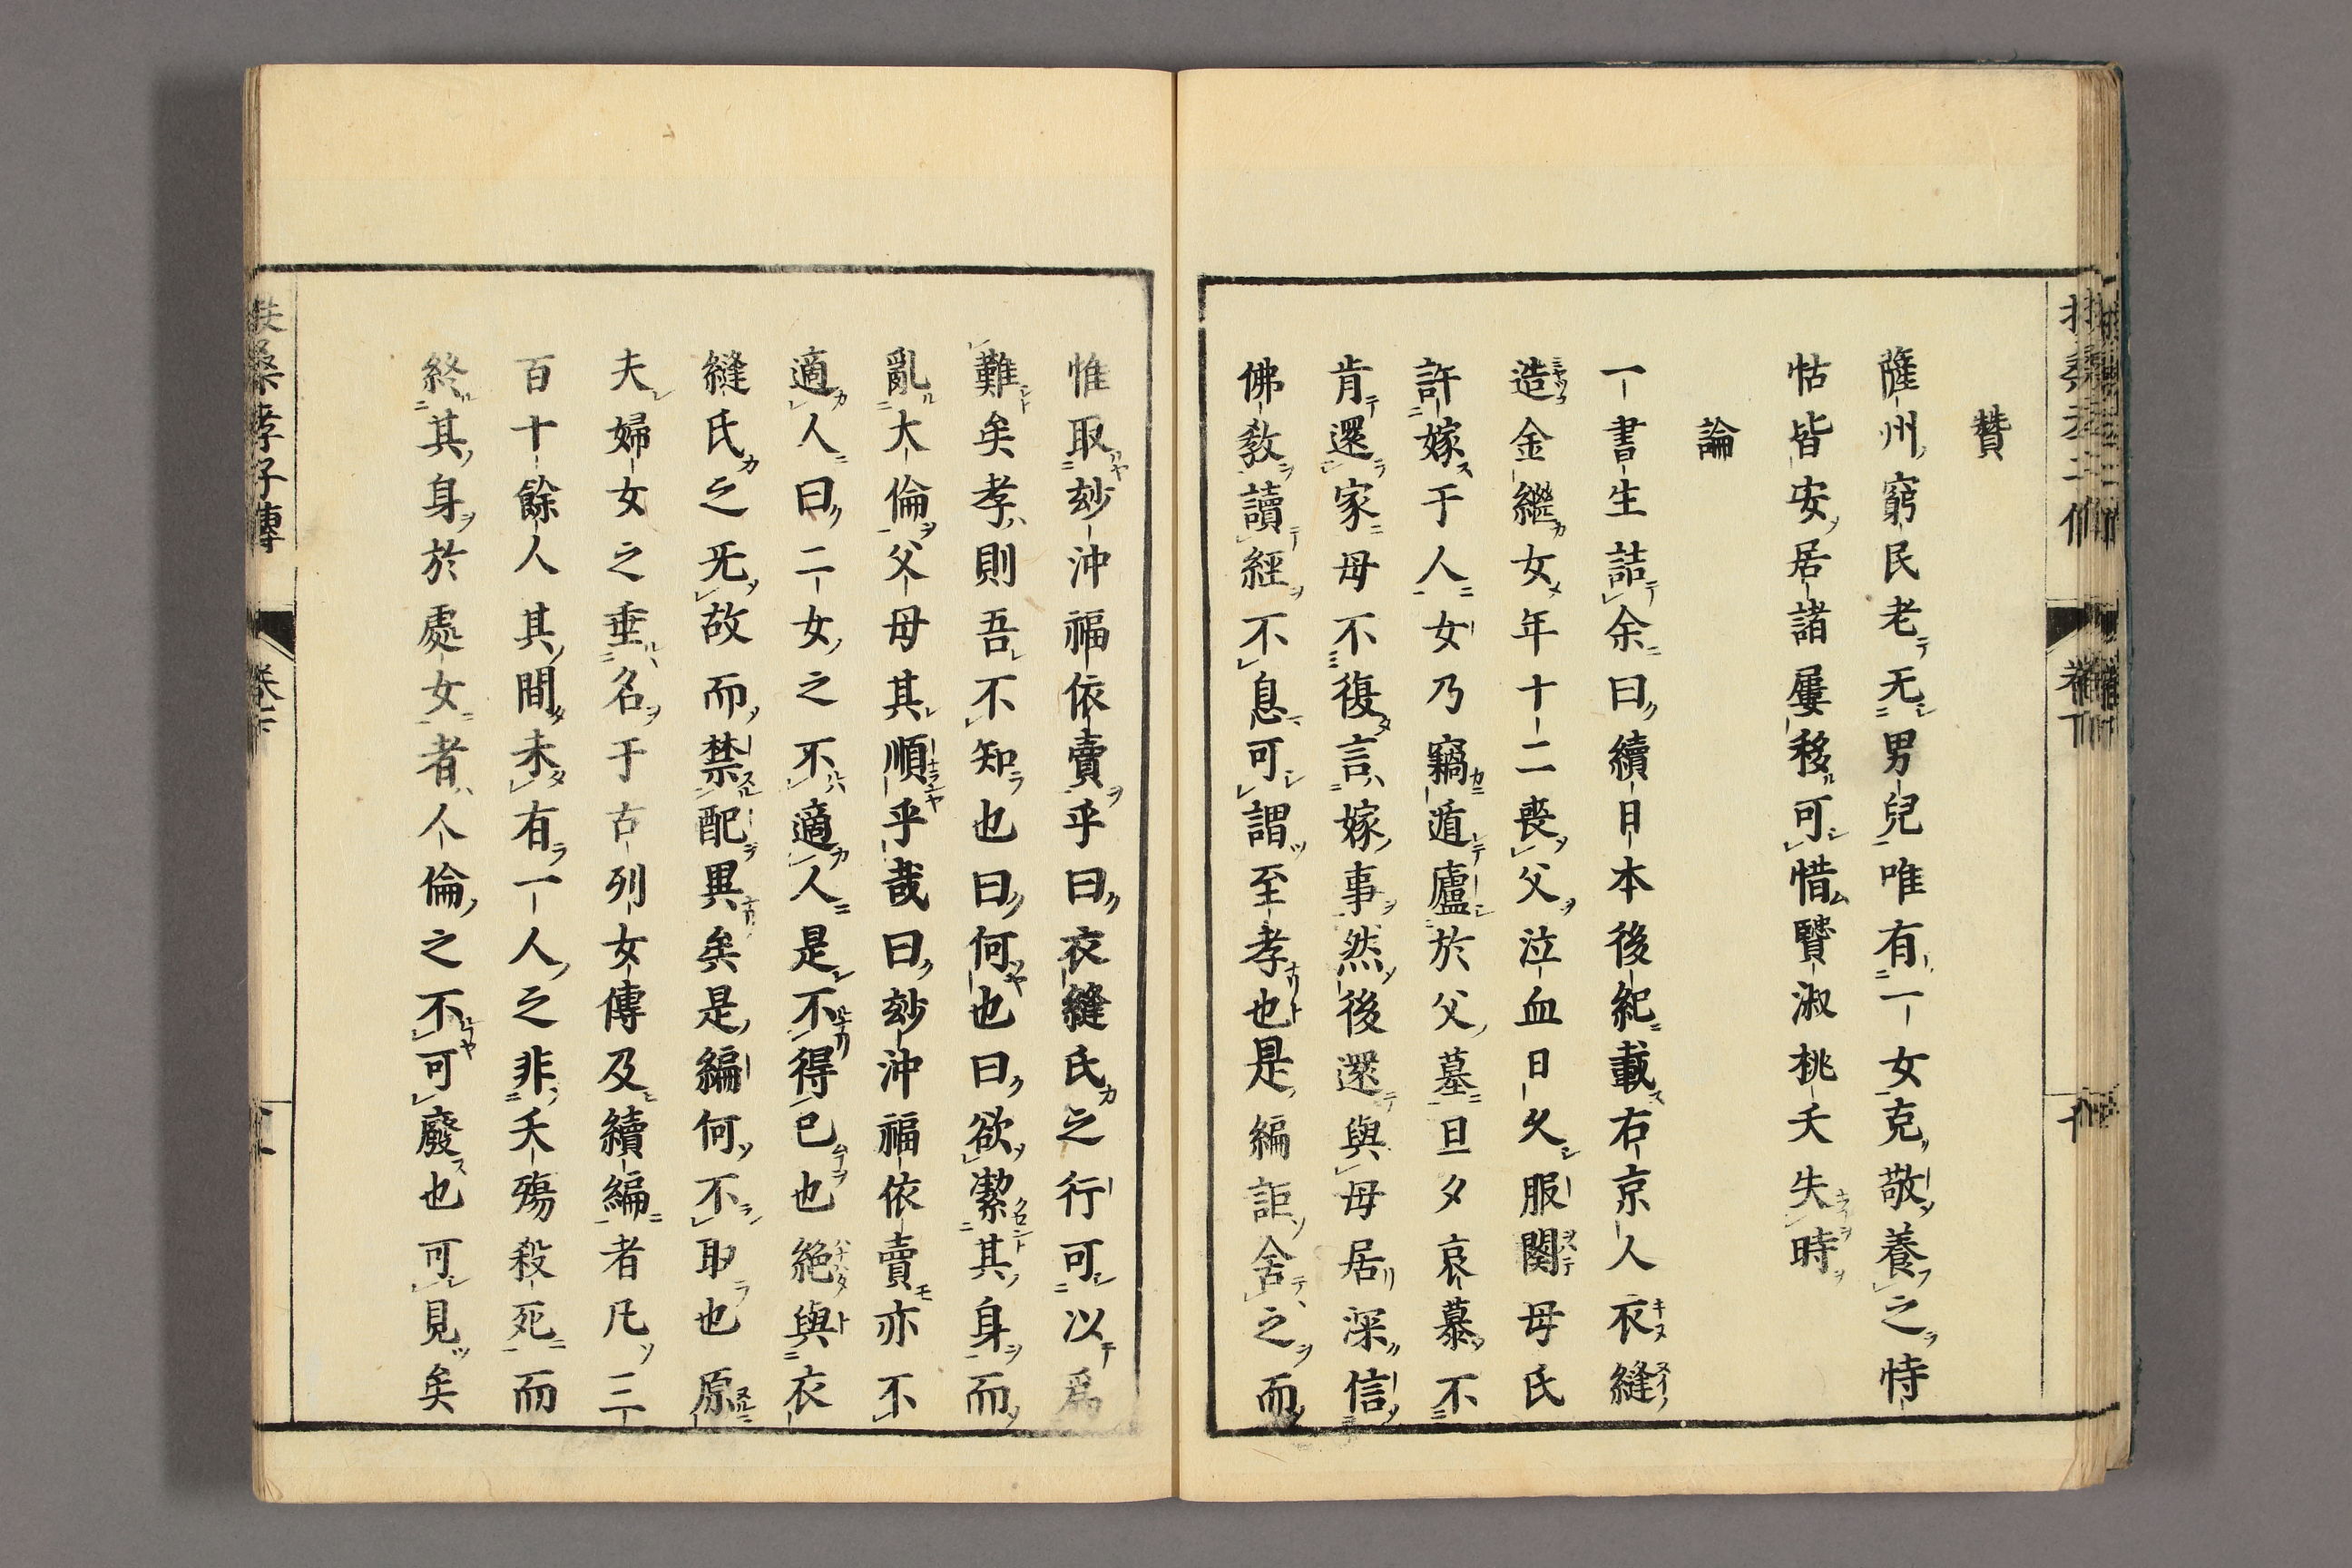 贊
薩州窮民老无男兒唯有一女克敬養之恃
怙皆安居諸屢移可惜賢淑桃夭失時
論
一書生詰余曰續日本後紀載右京人衣縫
造金繼女年十二喪父泣血日久服闋母氏
許嫁于人女乃竊遁廬於父墓旦夕哀慕不
肯還家母不復言嫁事然後還與母居深信
佛教讀經不息可謂至孝也是編詎舍之而
惟取玅沖福依賣乎曰衣縫氏之行可以爲
難矣孝則吾不知也曰何也曰欲潔其身而
亂大倫父母其順乎哉曰玅沖福依賣亦不
適人曰二女之不適人是不得已也絶與衣
縫氏之旡故而禁配異矣是編何不取也原
夫婦女之垂名于古列女傳及續編者凡三
百十餘人其間未有一人之非夭殤殺死而
終其身於處女者人倫之不可廢也可見矣
扶桑孝子傳
卷下